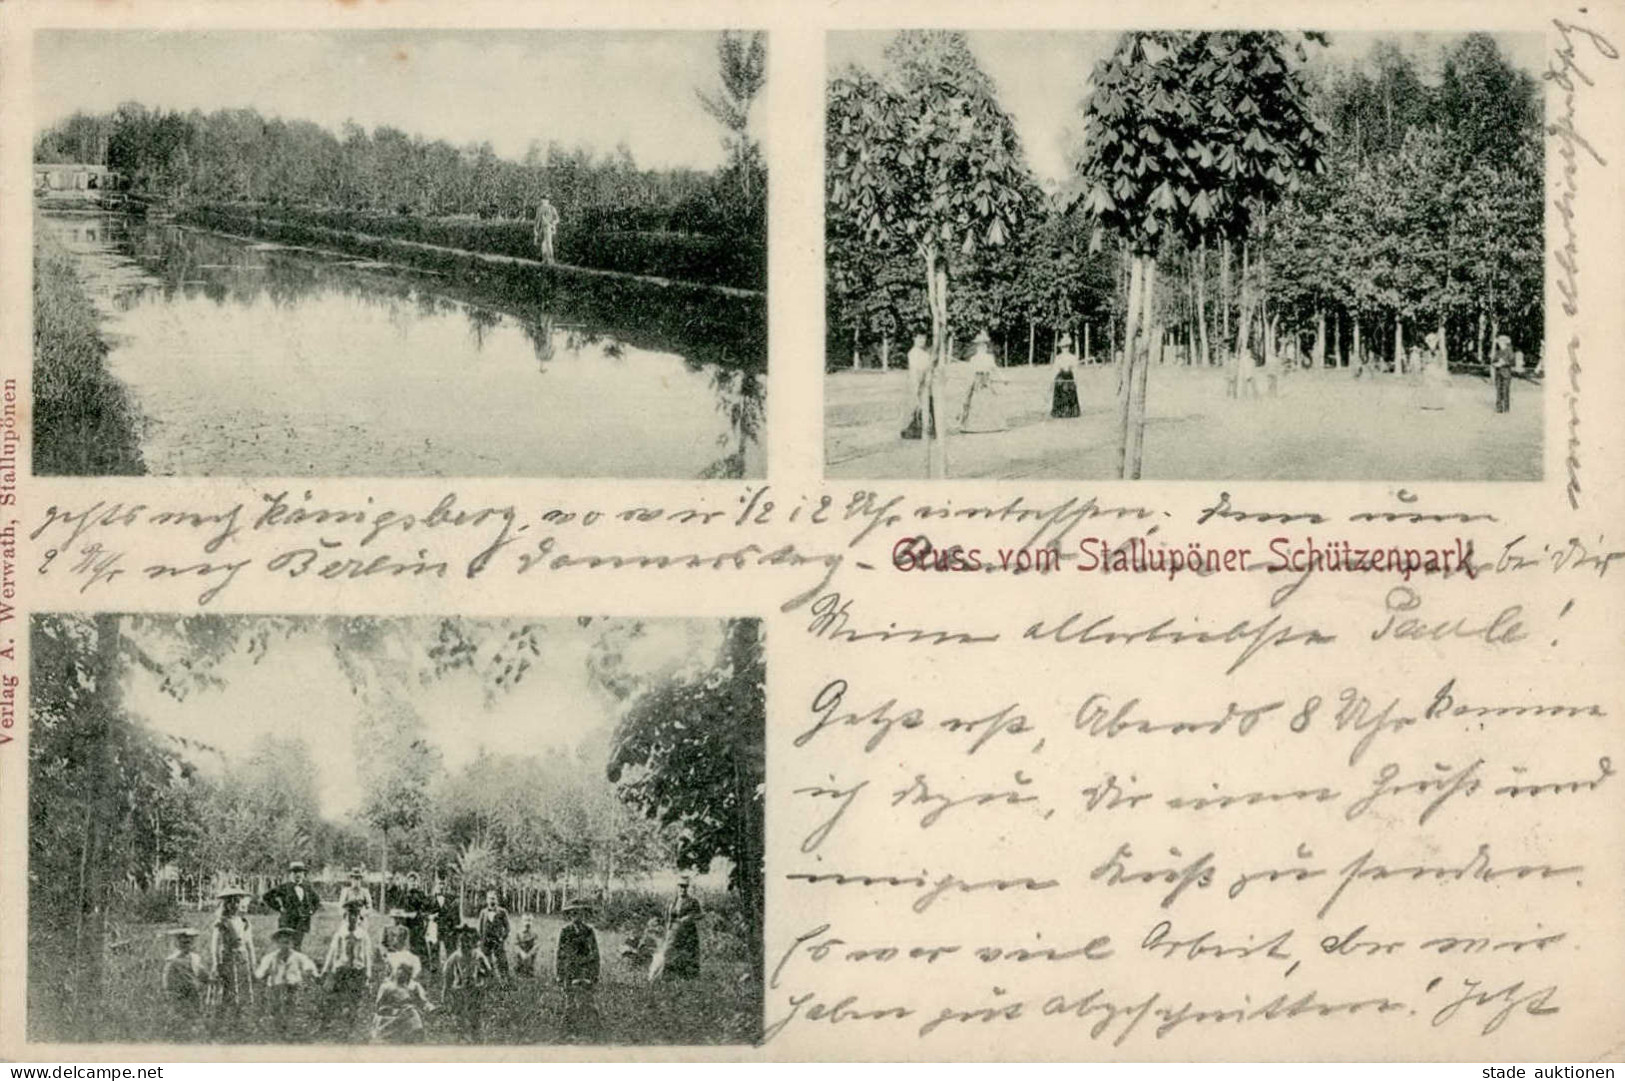 Gruss vom Stallupöner Schützenpark
Meine allerliebste Paula!
Jetzt erst, Abends 8 Uhr komme
ich dazu, Dir einen Gruß und
innigen Kuß zu senden.
Es war viel Arbeit, aber wir
haben gut abgeschnitten! Jetzt
gehts nach Königsberg, wo wir 1/2 12 Uhr eintreffen; dann um
2 Uhr nach Berlin Donnerstag - bei Dir
Verlag A. Werwath, Stallupönen
delcampe.net
stade auktionen